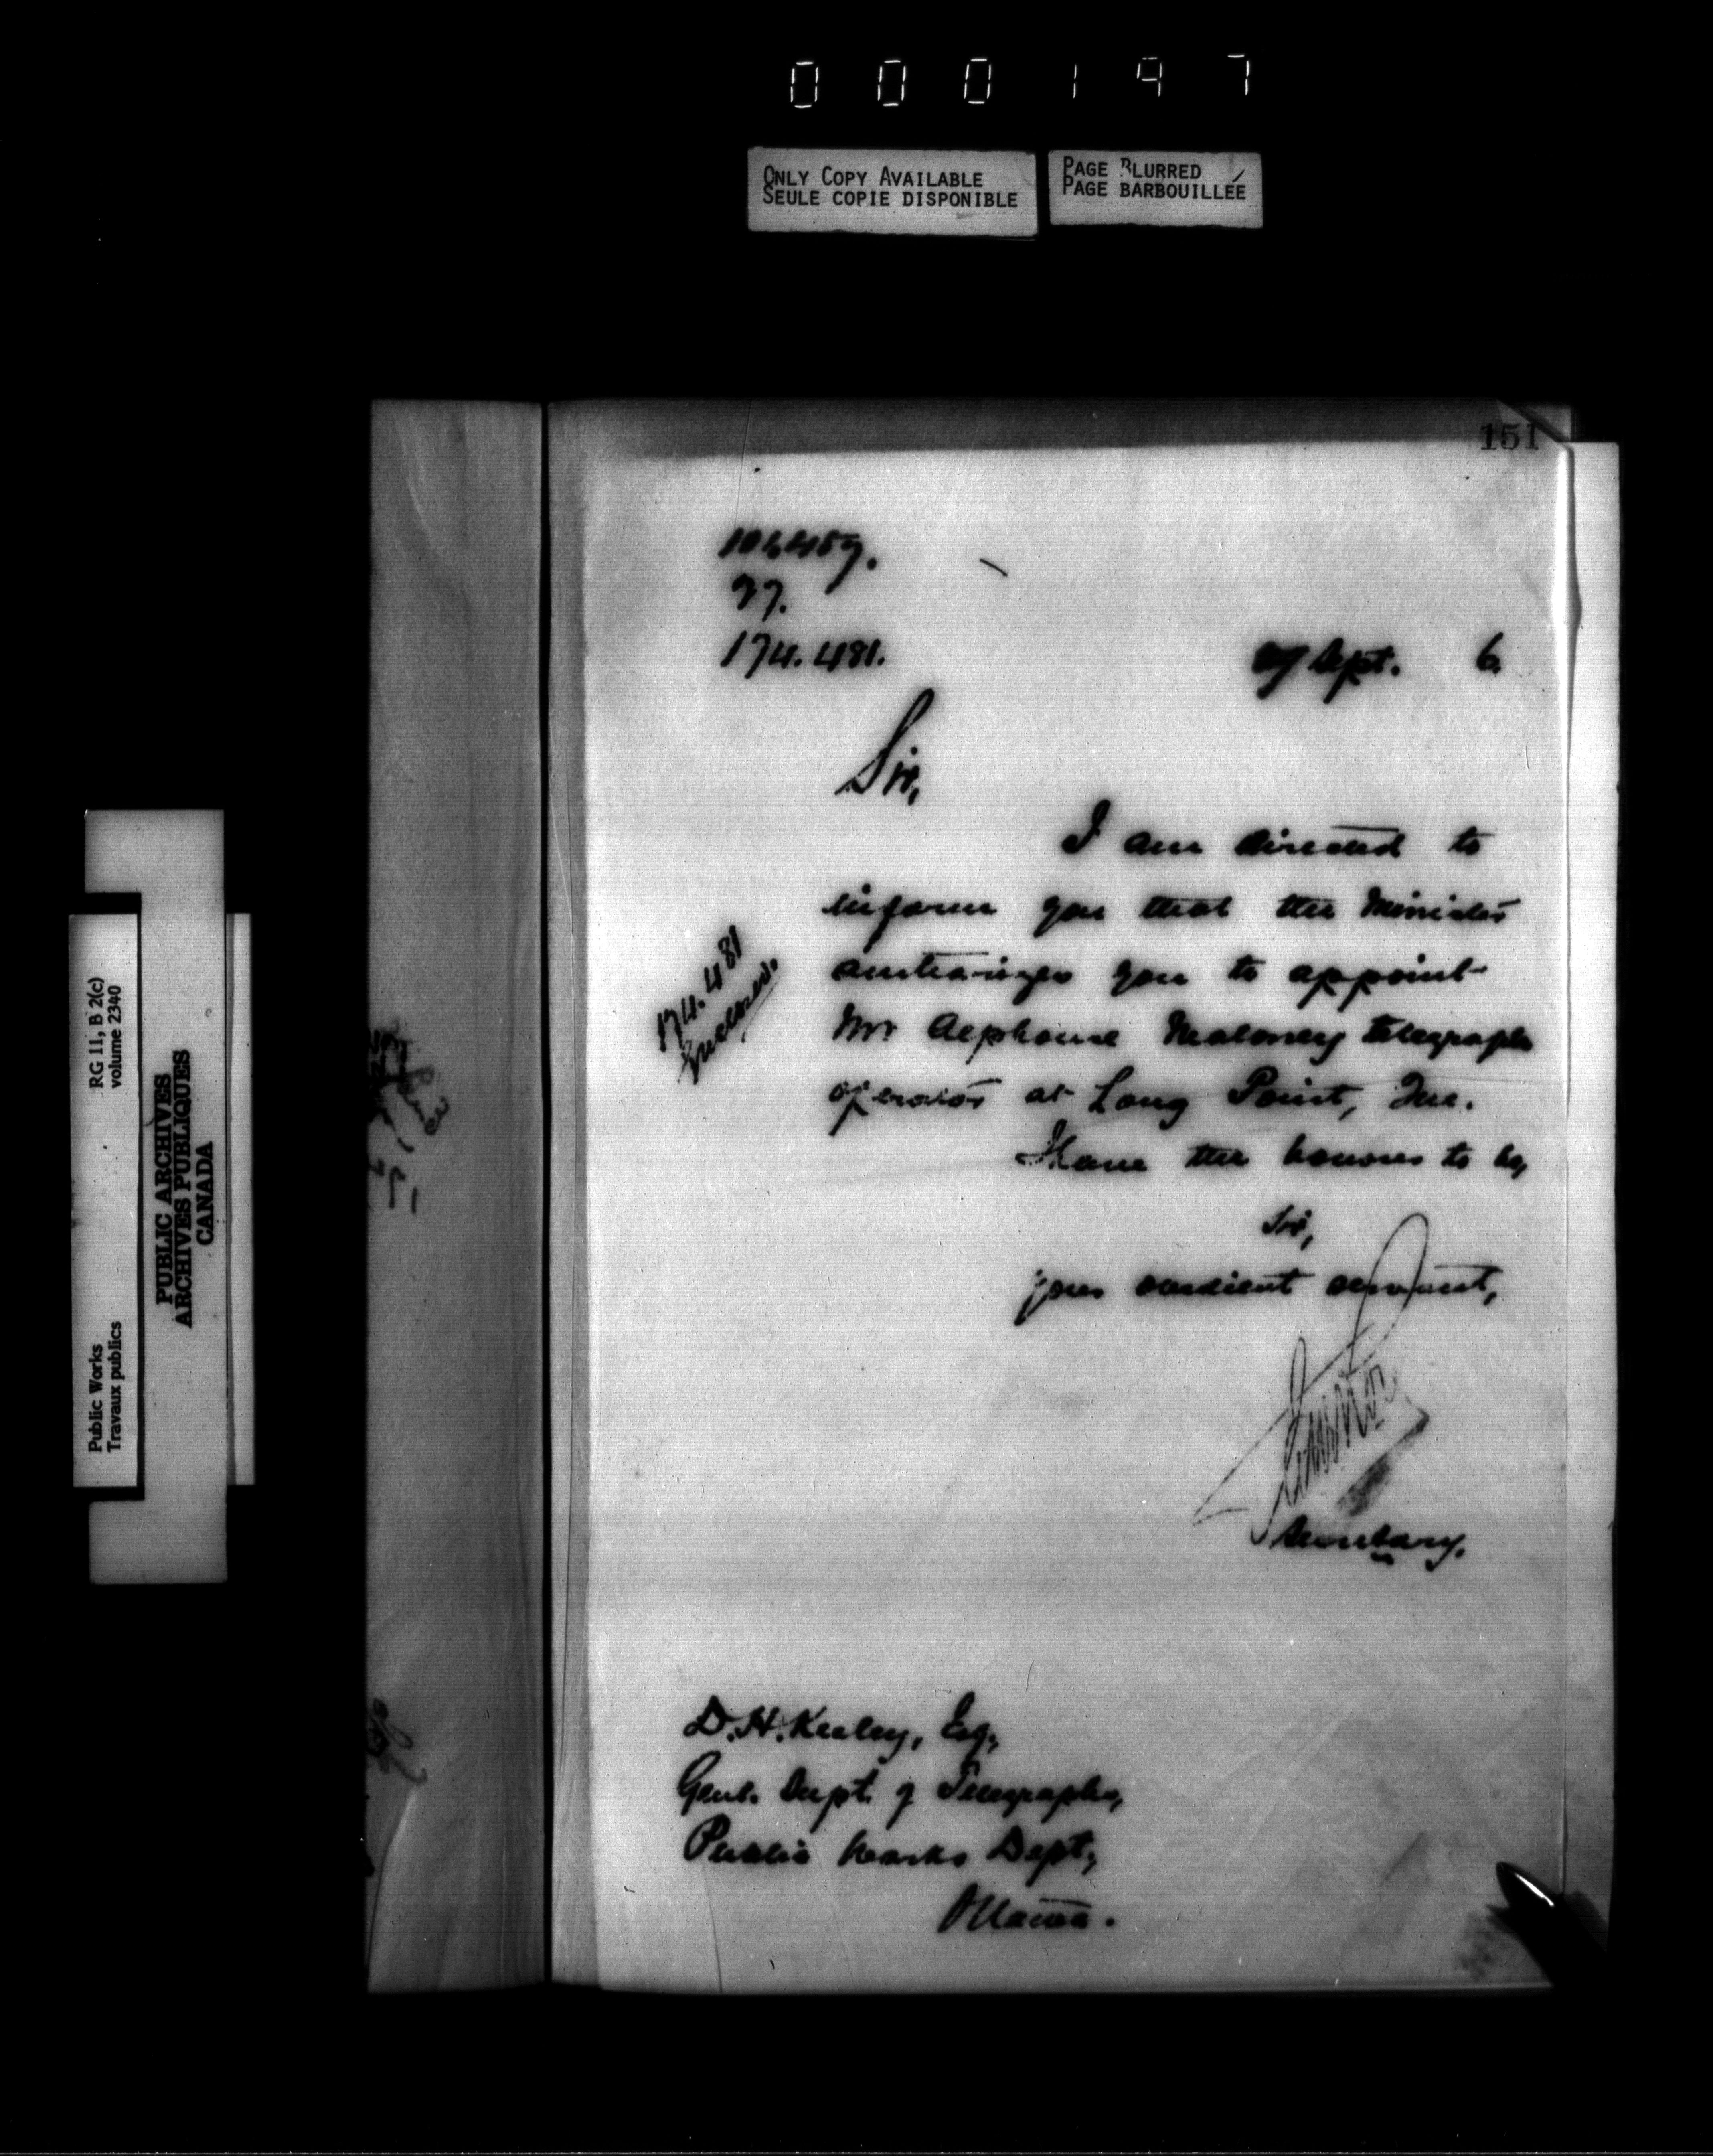 000197
ONLY COPY AVAILABLE
SEULE COPIE DISPONIBLE
PAGE BLURRED
PAGE BARBOUILLÉE
151
97.
174.481.
Sept. 6
Sir,
I am directed to
inform you that the Minister
authorizes you to appoint
Mr Alphonse Maloney telegraph
operator at Long Point, Que.
I have the honour to be,
Sir,
your obedient servant,
Secretary.
174.481
D. H. Keeley, Esq.,
Genl. Supt. of Telegraphs,
Public Works Dept.,
Ottawa.
RG 11, B 2(c)
volume 2340
Public Works
Travaux publics
PUBLIC ARCHIVES
ARCHIVES PUBLIQUES
CANADA